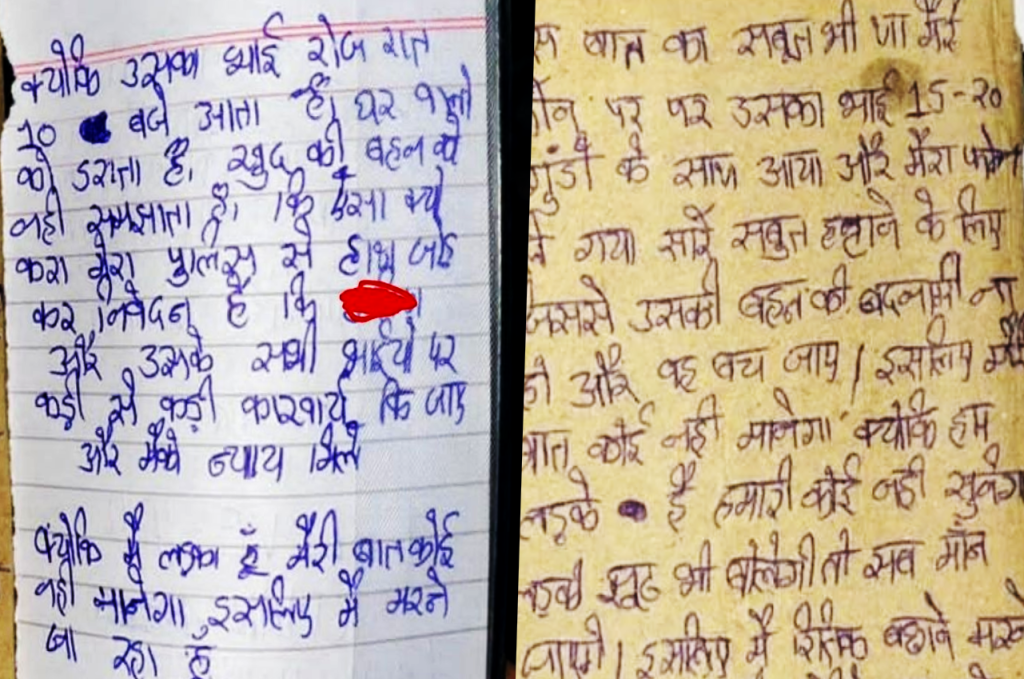 क्योकि उसका भाई रोज रात
10 बजे आता है। घर वालो
को डराता है, खुद की बहन को
नही समझाता है। कि ऐसा क्यो
करा मेरा पुलिस से हाथ जोड़
कर निवेदन है कि
और उसके सभी भाईयो पर
कड़ी से कड़ी कारवाई कि जाए
और मैको न्याय मिले
क्योकि मै लड़का हूँ मैरी बात कोई
नही मानेगा इसलिए मै मरने
जा रहा हूँ
बात का सबूत भी था मैरे
फोन पर पर उसका भाई 15-20
गुंडो के साथ आया और मैरा फोन
ले गया सारे सबुत हटाने के लिए
जिससे उसकी बहन की बदनामी ना
हो और वह बच जाए। इसलिए मैरी
बात कोई नही मानेगा क्योकि हम
लड़के है हमारी कोई नही सुनेगा
लड़की झूठ भी बोलेगी तो सब मॉन
जाएगे। इसलिए मै